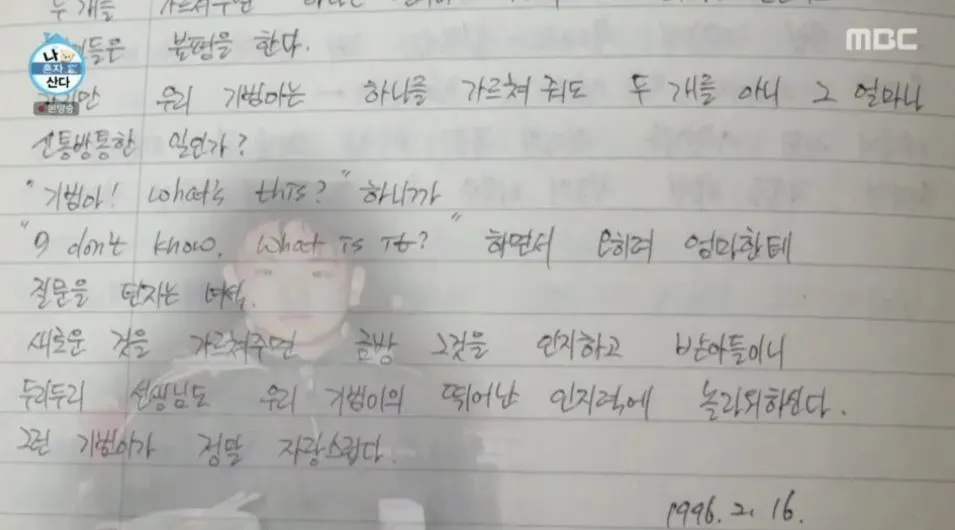 두 개를 가르쳐주면
들은 불평을 한다.
MBC
나
혼자
산다
본방송
우리 기범아는 하나를 가르쳐 줘도 두 개를 아니 그 얼마나
신통방통한 일인가?
"기범아! What's this?" 하니까
"I don't know, What is it?" 하면서 오히려 엄마한테
질문을 던지는 녀석.
새로운 것을 가르쳐주면 금방 그것을 인지하고 받아들이니
두리두리 선생님도 우리 기범이의 뛰어난 인지력에 놀라워하신다.
그런 기범이가 정말 자랑스럽다.
1996. 2. 16.